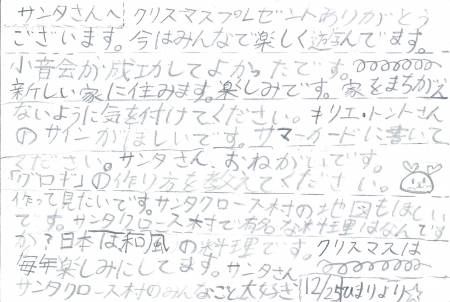 サンタさんへ クリスマスプレゼントありがとう
ございます。今はみんなで楽しく遊んでます。
小音会が成功してよかったです。
新しい家に住みます。楽しみです。家をまちがえ
ないように気を付けてください。キリエ・トントさん
のサインがほしいです。サマーカードに書いて
ください。サンタさん、おねがいです。
「グロギ」の作り方を教えてください。
作って見たいです。サンタクロース村の地図もほしい
です。サンタクロース村で有名な料理はなんです
か?日本は和風の料理です。クリスマスは
毎年楽しみにしてます。サンタさん
サンタクロース村のみんなこと大好き 12/25ひまりより☆